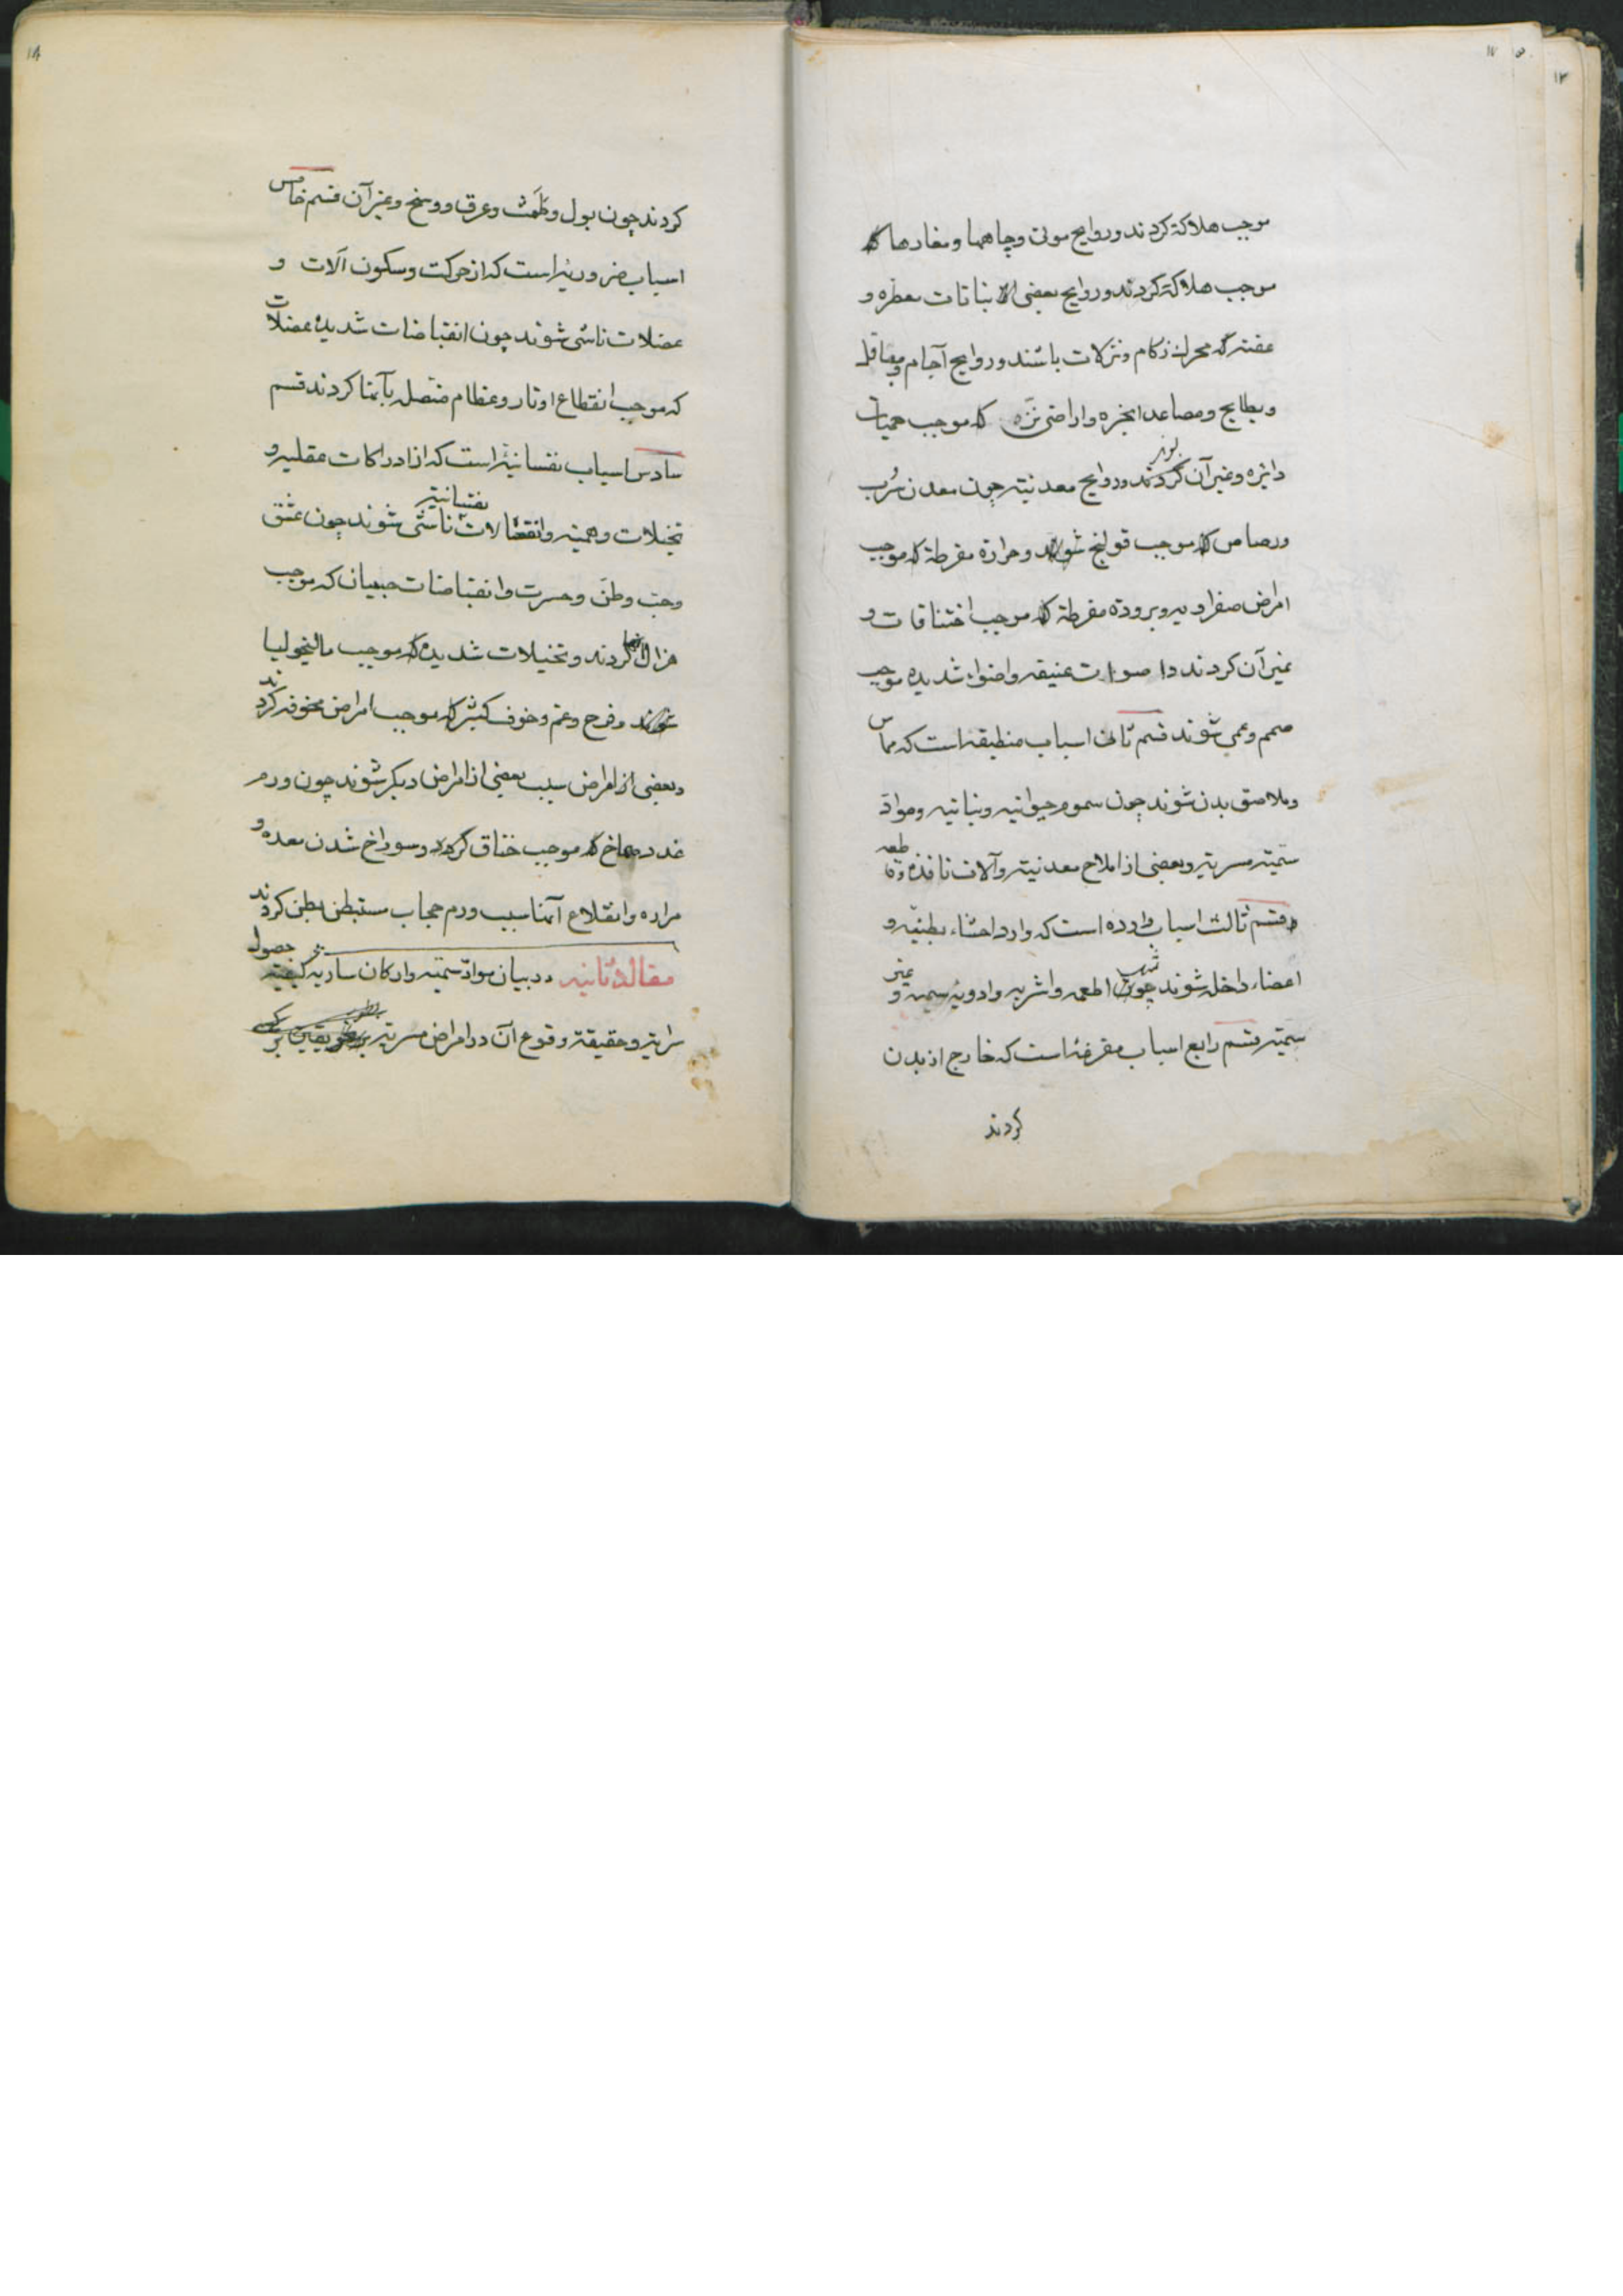 ۱۷
۱۳
موجب هلاکة کردند و روایح موتی و چاهها و مغارها که
موجب هلاکة کردند و روایح بعضی از نباتات معطره و
عفنه که محرک زکام و نزلات باشند و روایح آجام و مباقل
و بطایح و مصاعد ابخره و اراضی نزّه که موجب حمیات
دائره و غیر آن کردند و روایح معدنیه چون معدن سُرب
و رصاص که موجب قولنج شوند و حرارة مفرطة که موجب
امراض صفراویه و برودة مفرطة که موجب اختناقات و
غیر آن کردند و اصوات عنیفه و اضواء شدیده موجب
صمم و عمی شوند قسم ثانی اسباب منطبقه است که مماس
و ملاصق بدن شوند چون سموم حیوانیه و نباتیه و موادّ
سمّیته مسریه و بعضی از املاح معدنیه و آلات نافذه و قاطعه
و قسم ثالث اسباب وارده است که وارد احشاء بطنیه و
اعضاء داخل شوند چون اطعمه و اشربه و ادویهٔ سمیه و غیر
سمّیه قسم رابع اسباب مفرغه است که خارج از بدن
کردند
۱۴
کردند چون بول و طَمث و عرق و وسخ و غیر آن قسم خامس
اسباب ضروریه است که از حرکت و سکون آلات و
عضلات ناشی شوند چون انقباضات شدیدهٔ عضلات
که موجب انقطاع اوتار و عظام متصل بآنها کردند قسم
سادس اسباب نفسانیه است که از ادراکات عقلیه و
تخیلات وهمیه و انفعالات نفسانیه ناشی شوند چون عشق
و حبّ وطن و حسرت و انقباضات صبیان که موجب
هزال آنها کردند و تخیلات شدیده که موجب مالیخولیا
شوند و فرح و غم و خوف کثیر که موجب امراض مخوفه کردند
و بعضی از امراض سبب بعضی از امراض دیکر شوند چون ورم
غدد صماخ که موجب خناق کردد و سوراخ شدن معده و
مراره و انقلاع آنها سبب ورم حجاب مستبطن بطن کردند
مقالهٔ ثانیه در بیان موادّ سمّیه و ارکان ساریه کیفیته حصول
سرایة و حقیقة وقوع آن در امراض مسریه